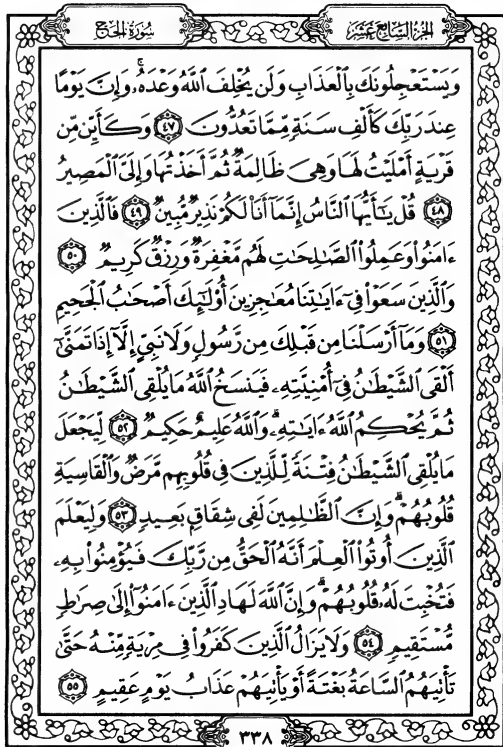 الجزء السابع عشر
سورة الحج
وَيَسْتَعْجِلُونَكَ بِٱلْعَذَابِ وَلَن يُخْلِفَ ٱللَّهُ وَعْدَهُۥۚ وَإِنَّ يَوْمًا
عِندَ رَبِّكَ كَأَلْفِ سَنَةٍ مِّمَّا تَعُدُّونَ ٤٧ وَكَأَيِّن مِّن
قَرْيَةٍ أَمْلَيْتُ لَهَا وَهِىَ ظَالِمَةٌ ثُمَّ أَخَذْتُهَا وَإِلَىَّ ٱلْمَصِيرُ
٤٨ قُلْ يَٰٓأَيُّهَا ٱلنَّاسُ إِنَّمَآ أَنَا۠ لَكُمْ نَذِيرٌ مُّبِينٌ ٤٩ فَٱلَّذِينَ
ءَامَنُوا۟ وَعَمِلُوا۟ ٱلصَّٰلِحَٰتِ لَهُم مَّغْفِرَةٌ وَرِزْقٌ كَرِيمٌ ٥٠
وَٱلَّذِينَ سَعَوْا۟ فِىٓ ءَايَٰتِنَا مُعَٰجِزِينَ أُو۟لَٰٓئِكَ أَصْحَٰبُ ٱلْجَحِيمِ
٥١ وَمَآ أَرْسَلْنَا مِن قَبْلِكَ مِن رَّسُولٍ وَلَا نَبِىٍّ إِلَّآ إِذَا تَمَنَّىٰٓ
أَلْقَى ٱلشَّيْطَٰنُ فِىٓ أُمْنِيَّتِهِۦ فَيَنسَخُ ٱللَّهُ مَا يُلْقِى ٱلشَّيْطَٰنُ
ثُمَّ يُحْكِمُ ٱللَّهُ ءَايَٰتِهِۦۗ وَٱللَّهُ عَلِيمٌ حَكِيمٌ ٥٢ لِّيَجْعَلَ
مَا يُلْقِى ٱلشَّيْطَٰنُ فِتْنَةً لِّلَّذِينَ فِى قُلُوبِهِم مَّرَضٌ وَٱلْقَاسِيَةِ
قُلُوبُهُمْۗ وَإِنَّ ٱلظَّٰلِمِينَ لَفِى شِقَاقٍۭ بَعِيدٍ ٥٣ وَلِيَعْلَمَ
ٱلَّذِينَ أُوتُوا۟ ٱلْعِلْمَ أَنَّهُ ٱلْحَقُّ مِن رَّبِّكَ فَيُؤْمِنُوا۟ بِهِۦ
فَتُخْبِتَ لَهُۥ قُلُوبُهُمْۗ وَإِنَّ ٱللَّهَ لَهَادِ ٱلَّذِينَ ءَامَنُوٓا۟ إِلَىٰ صِرَٰطٍ
مُّسْتَقِيمٍ ٥٤ وَلَا يَزَالُ ٱلَّذِينَ كَفَرُوا۟ فِى مِرْيَةٍ مِّنْهُ حَتَّىٰ
تَأْتِيَهُمُ ٱلسَّاعَةُ بَغْتَةً أَوْ يَأْتِيَهُمْ عَذَابُ يَوْمٍ عَقِيمٍ ٥٥
٣٣٨